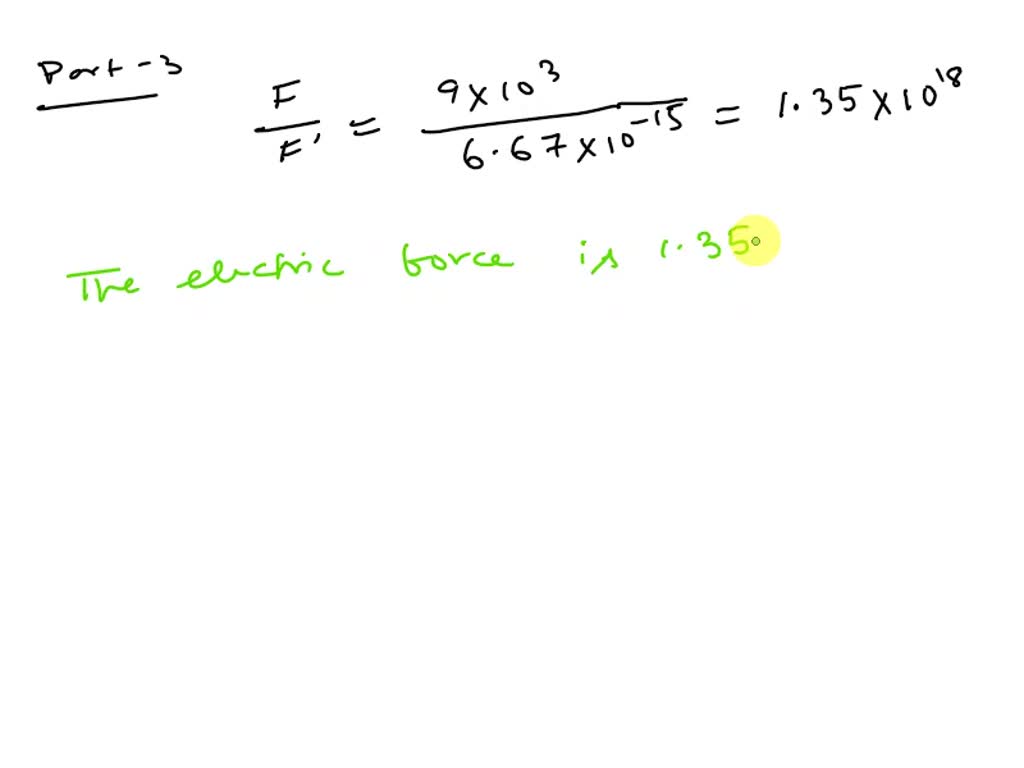 Part-3
F/F' = 9×10³/6.67×10⁻¹⁵ = 1.35×10¹⁸
The electric force is 1.35